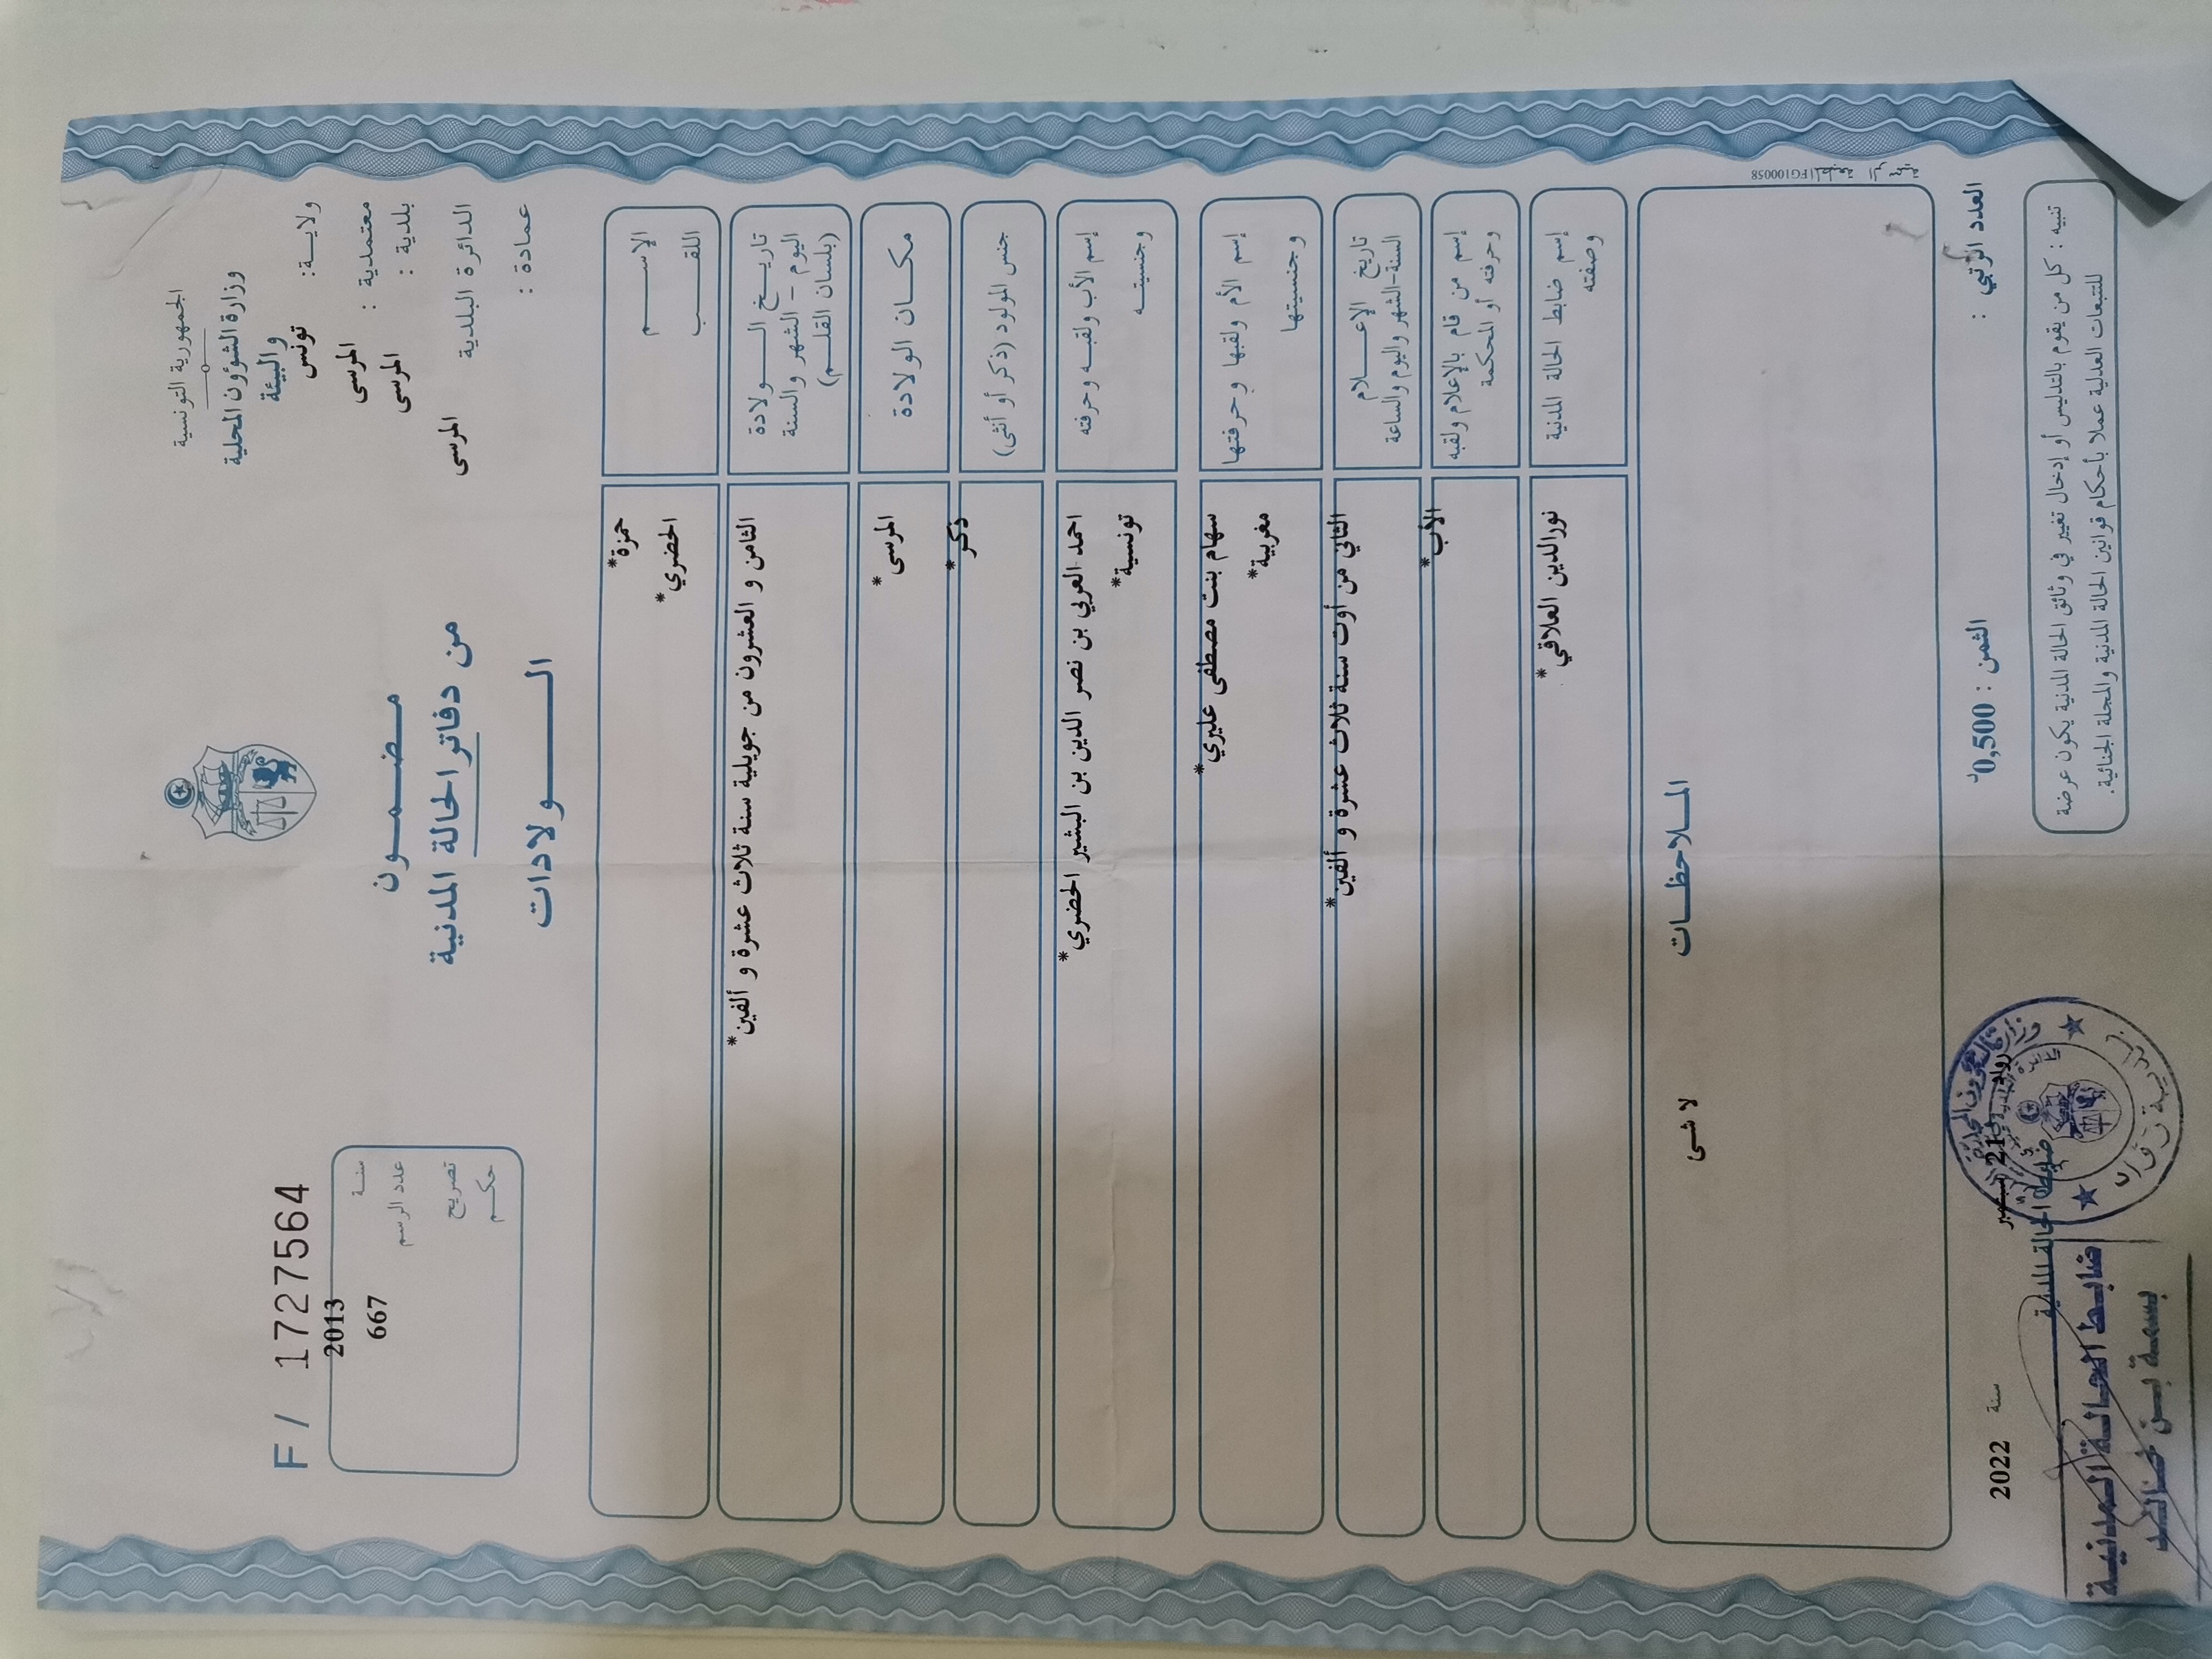 الجمهورية التونسية
وزارة الشؤون المحلية
والبيئة
ولايـــة: تونس
معتمدية : المرسى
بلدية : المرسى
الدائرة البلدية المرسى
عمادة :
مـضـمــون
من دفاتر الحالة المدنية
الــــولادات
F / 1727564
سنـة 2013
عدد الرسم 667
تصريح
حكـم
الإســــم حمزة*
اللقــــب الحضري*
تاريــخ الــــولادة
اليوم - الشهر والسنة
(بلسان القلـــم)
الثامن و العشرون من جويلية سنة ثلاث عشرة و ألفين*
مكــان الولادة المرسى*
جنس المولود (ذكر أو أنثى) ذكر*
إسم الأب ولقبـه وحرفته احمد العربي بن نصر الدين بن البشير الحضري*
وجنسيتـــه تونسية*
إسم الأم ولقبها وحرفتها سهام بنت مصطفى عليري*
وجنسيتها مغربية*
تاريخ الإعـــلام
السنة-الشهر واليوم والساعة
الثاني من أوت سنة ثلاث عشرة و ألفين*
إسم من قام بالإعلام ولقبه
وحرفته أو المحكمة
الأب*
إسم ضابط الحالة المدنية
وصفته
نورالدين العلاقي*
المــلاحظــات
لا شى
المطبعة الرسمية FG100058
العدد الرتبي :
الثمن : 0,500د
21 سبتمبر
سنة 2022
ضابط الحالة المدنية
ضابط الحالة المدنية
بسمة بن خالد
تنبيه : كل من يقوم بالتدليس أو إدخال تغيير في وثائق الحالة المدنية يكون عرضة
للتتبعات العدلية عملا بأحكام قوانين الحالة المدنية والمجلة الجنائية.